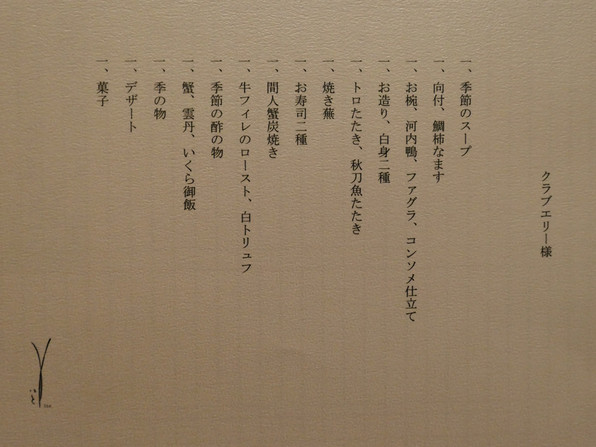 クラブエリー様
一、季節のスープ
一、向付、鯛柿なます
一、お椀、河内鴨、フォアグラ、コンソメ仕立て
一、お造り、白身二種
一、トロたたき、秋刀魚たたき
一、焼き蕪
一、お寿司二種
一、間人蟹炭焼き
一、牛フィレのロースト、白トリュフ
一、季節の酢の物
一、蟹、雲丹、いくら御飯
一、季の物
一、デザート
一、菓子